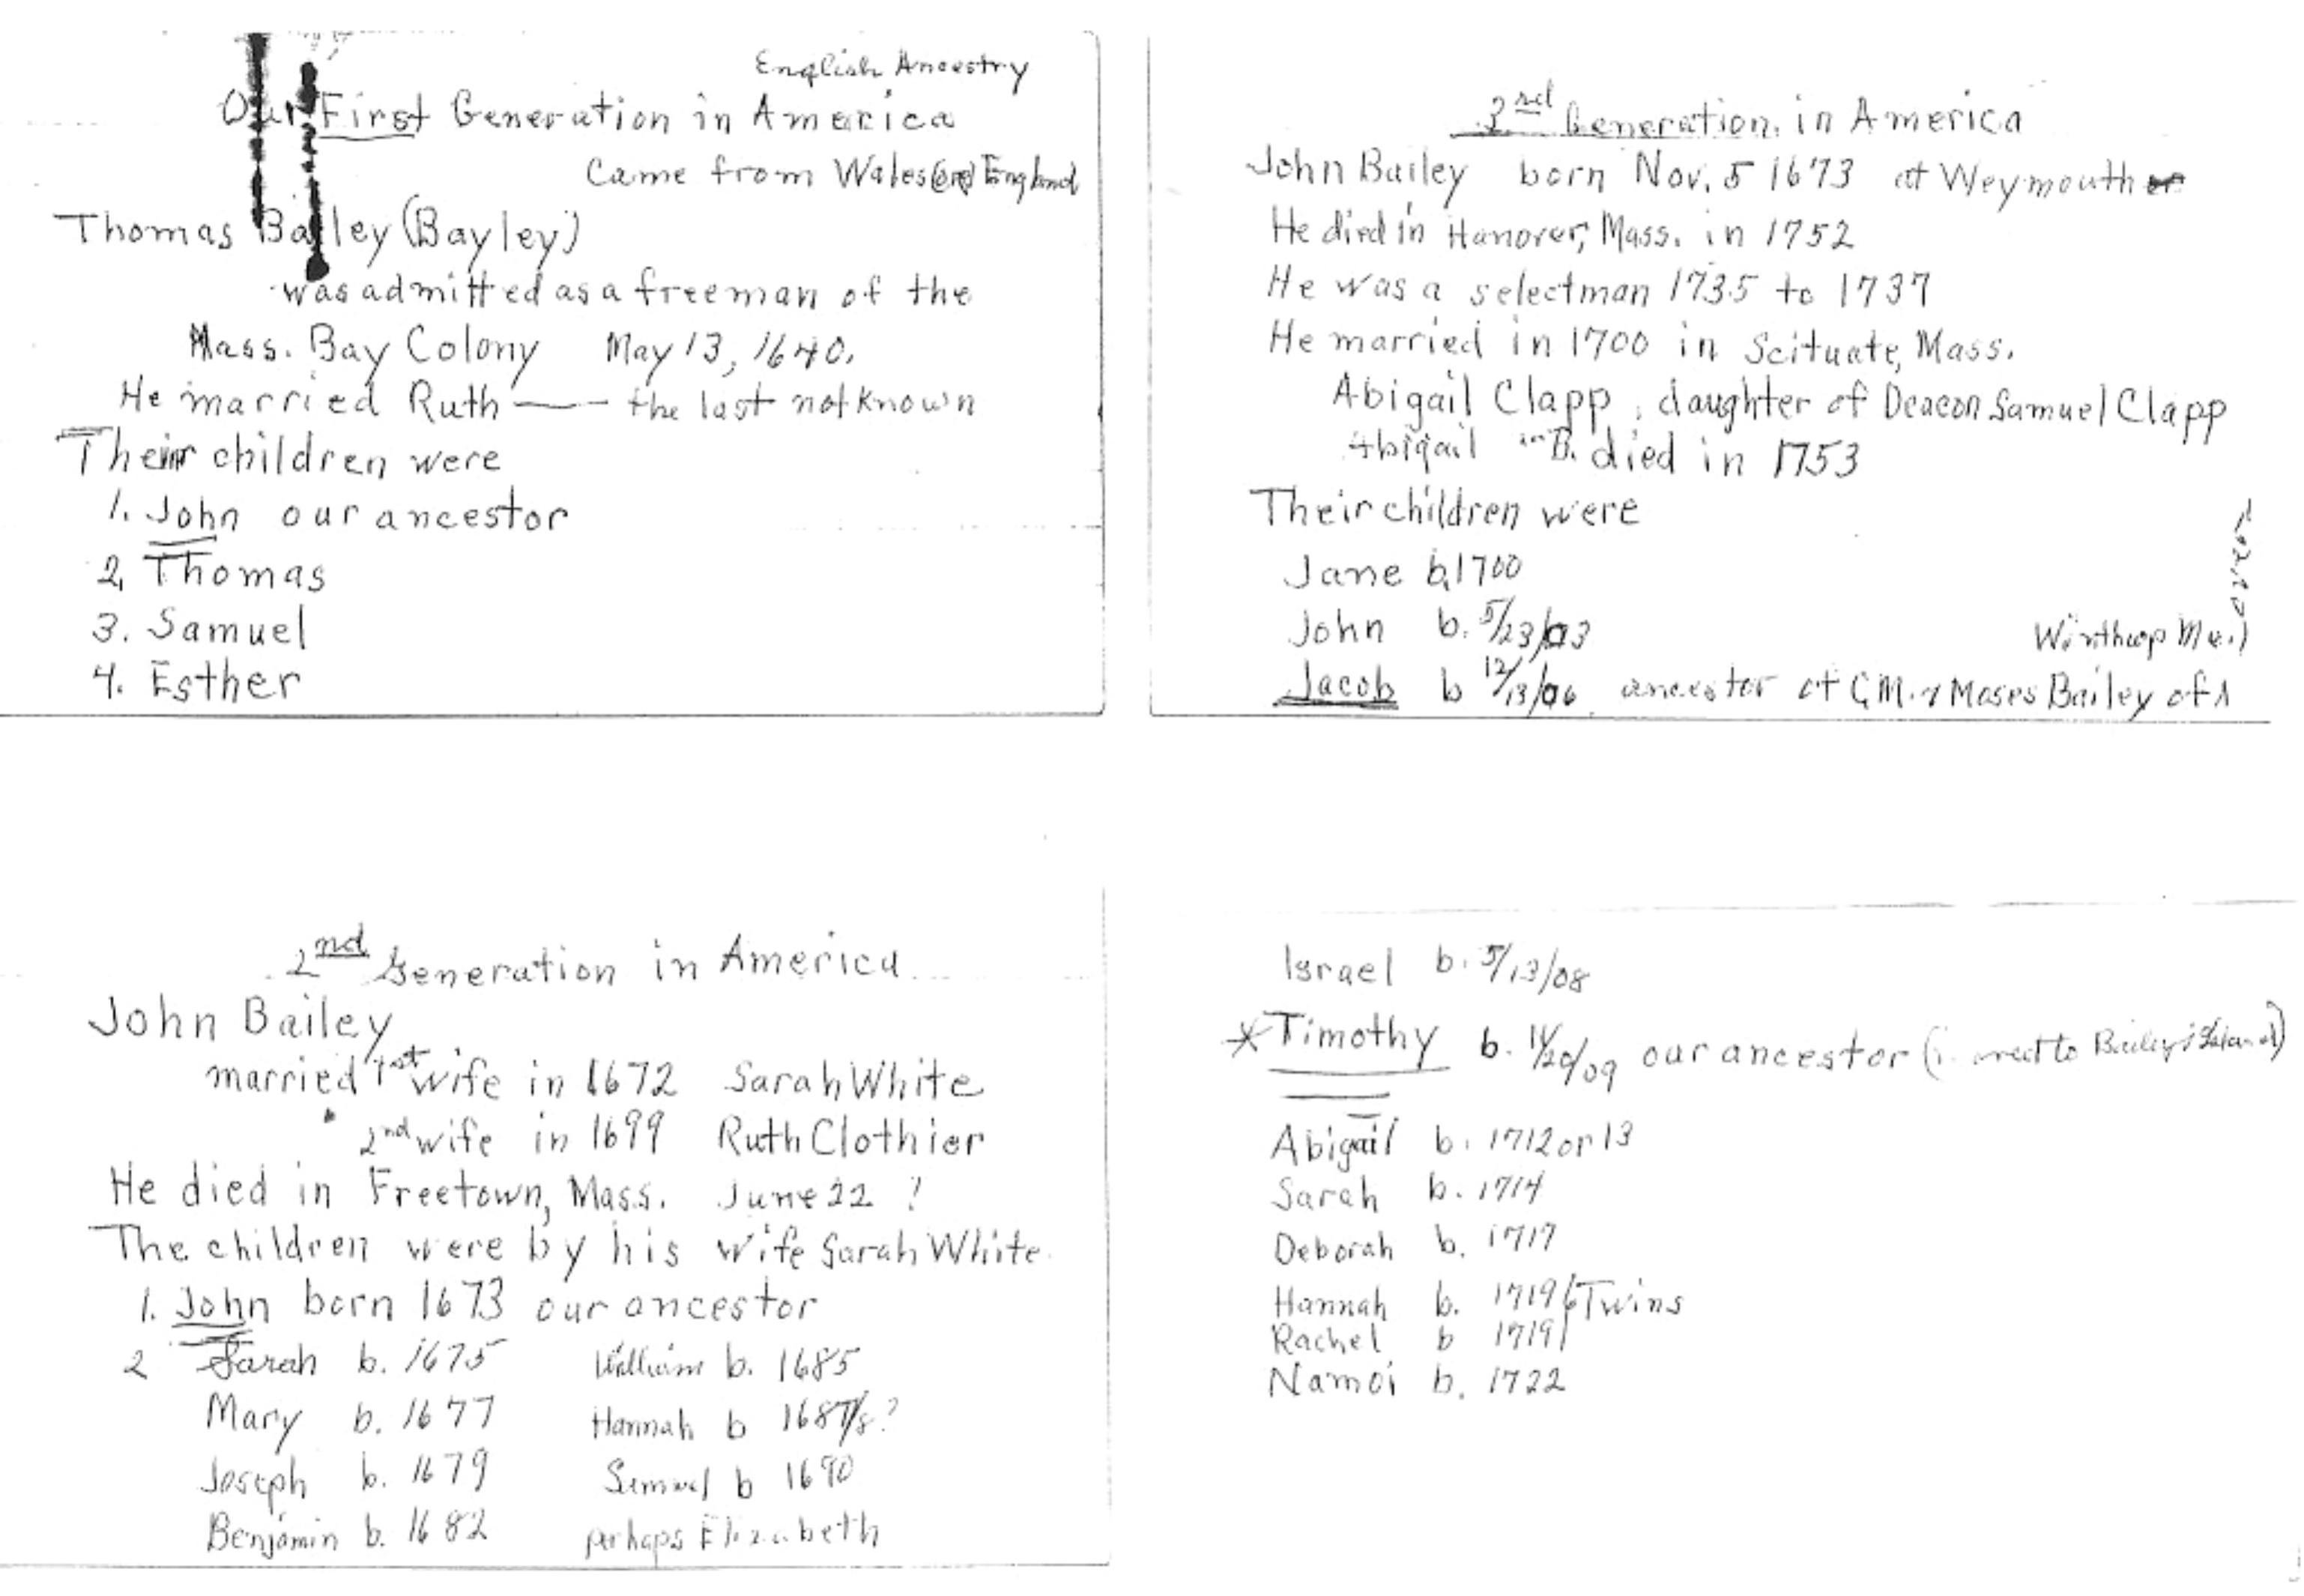 English Ancestry
Our First Generation in America
Came from Wales (or) England
Thomas Bailey (Bayley)
was admitted as a freeman of the
Mass. Bay Colony May 13, 1640.
He married Ruth —— the last not known
Their children were
1. John our ancestor
2. Thomas
3. Samuel
4. Esther
2nd Generation in America
John Bailey
married 1st wife in 1672 Sarah White
" 2nd wife in 1699 Ruth Clothier
He died in Freetown, Mass. June 22 ?
The children were by his wife Sarah White
1. John born 1673 our ancestor
2 Sarah b. 1675 William b. 1685
Mary b. 1677 Hannah b 1687/8?
Joseph b. 1679 Samuel b 1690
Benjamin b. 1682 perhaps Elizabeth
3nd Generation in America
John Bailey born Nov. 5 1673 at Weymouth
He died in Hanover, Mass. in 1752
He was a selectman 1735 to 1737
He married in 1700 in Scituate, Mass.
Abigail Clapp, daughter of Deacon Samuel Clapp
Abigail B. died in 1753
Their children were
Jane b. 1700
John b. 5/23/03
Winthrop Me.)
Jacob b 12/13/06 ancestor of G.M. & Moses Bailey of
Israel b. 5/13/08
* Timothy b. 11/20/09 our ancestor ( went to Bailey's Island)
Abigail b. 1712 or 13
Sarah b. 1714
Deborah b. 1717
Hannah b. 1719 Twins
Rachel b 1719
Namoi b. 1722